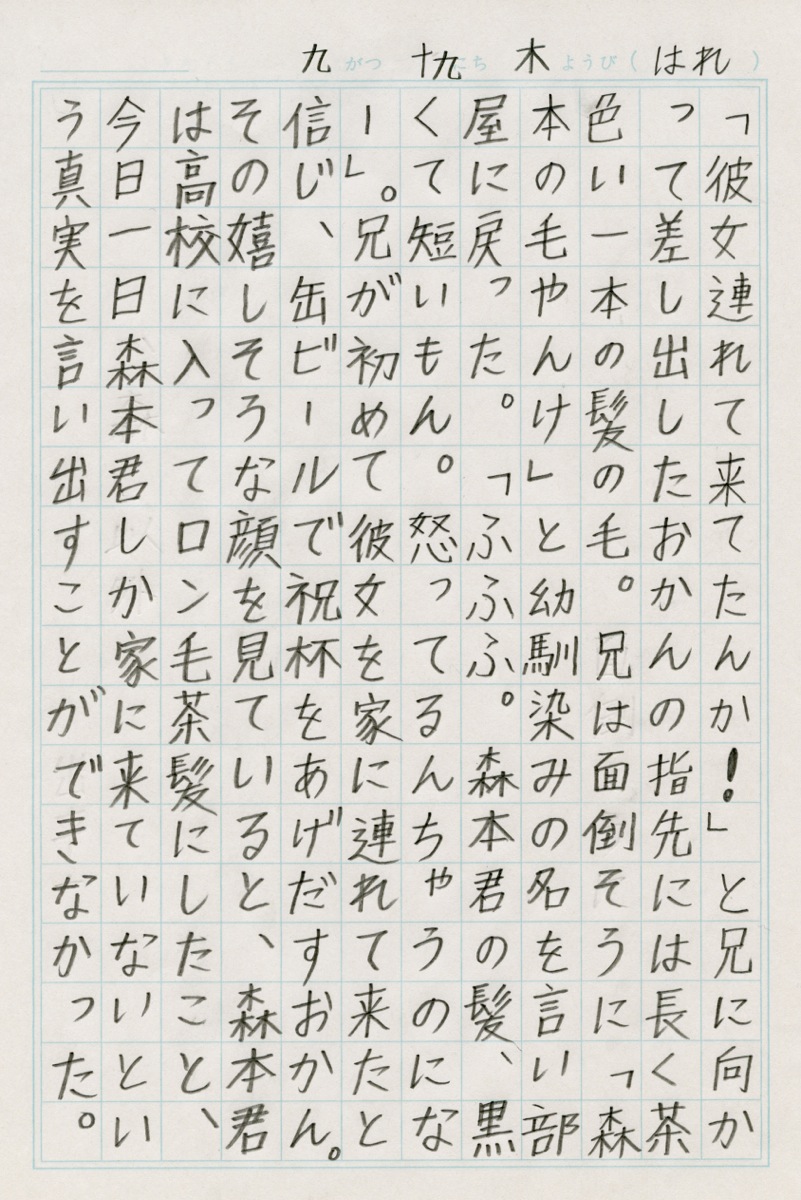 九がつ十九にち木ようび(はれ)
「彼女連れて来てたんか！」と兄に向か
って差し出したおかんの指先には長く茶
色い一本の髪の毛。兄は面倒そうに「森
本の毛やんけ」と幼馴染みの名を言い部
屋に戻った。「ふふふ。森本君の髪、黒
くて短いもん。怒ってるんちゃうのにな
ー」。兄が初めて彼女を家に連れて来たと
信じ、缶ビールで祝杯をあげだすおかん。
その嬉しそうな顔を見ていると、森本君
は高校に入ってロン毛茶髪にしたこと、
今日一日森本君しか家に来ていないとい
う真実を言い出すことができなかった。